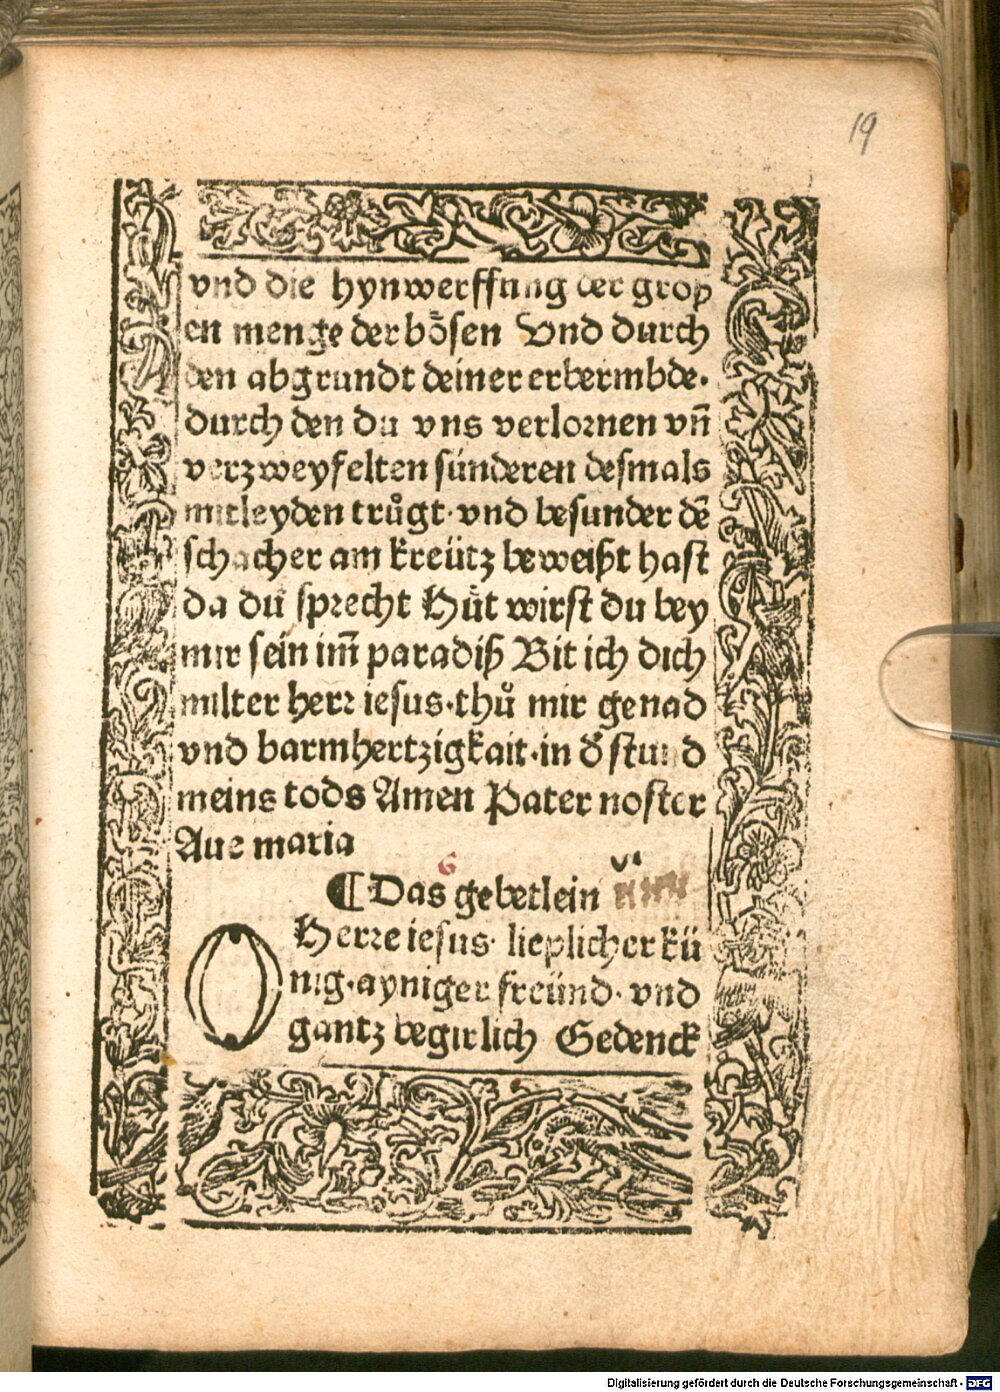 19
vnd die hynwerffung der grop
en menge der bo̊sen Vnd durch
den abgrundt deiner erbermbde.
durch den du vns verlornen vn̄
verzweyfelten sünderen desmals
mitleyden trůgt·vnd besunder dē
schacher am kreütz beweißt hast
da du sprecht Hůt wirst du bey
mir sein im̄ paradiß Bit ich dich
milter herr iesus·thů mir genad
vnd barmhertzigkait·in d̓ stund
meins tods Amen Pater noster
Aue maria
6
¶Das gebetlein vi
O Herre iesus· lieplicher kü
nig·ayniger freünd·vnd
gantz begirlich Gedenck
Digitalisierung gefördert durch die Deutsche Forschungsgemeinschaft - DFG